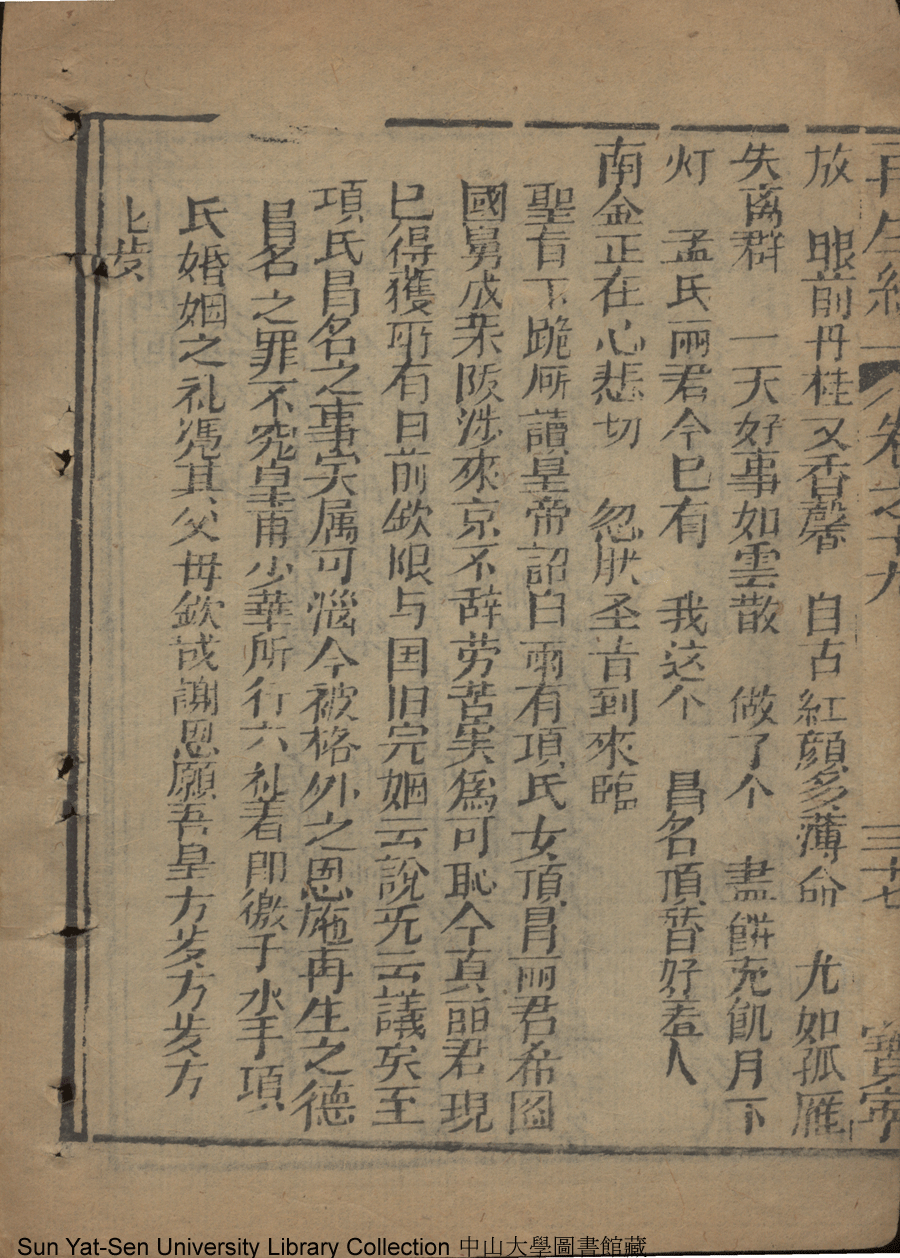 再生緣 卷之十九 三十七 寶寧
放 眼前丹桂又香馨 自古紅顔多薄命 尤如孤雁
失离群 一天好事如雲散 做了个 畫餅充飢月下
灯 孟氏丽君今已有 我这个 昌名頂替好羞人
南金正在心悲切 忽肰圣旨到來臨
聖旨下跪所讀皇帝詔曰雨有項氏女頂昌丽君希圖
國舅成来阪涉來京不辞劳苦矣爲可恥今真丽君現
已得獲所有日前欽限与国旧完姻云說旡云議矣至
項氏昌名之事实属可惱今被格外之恩施再生之德
昌名之罪不究皇甫少華所行六礼着即徼于水手項
氏婚姻之礼馮其父毋欽哉謝恩願吾皇万岁万岁万
岁
Sun Yat-Sen University Library Collection 中山大學圖書館藏